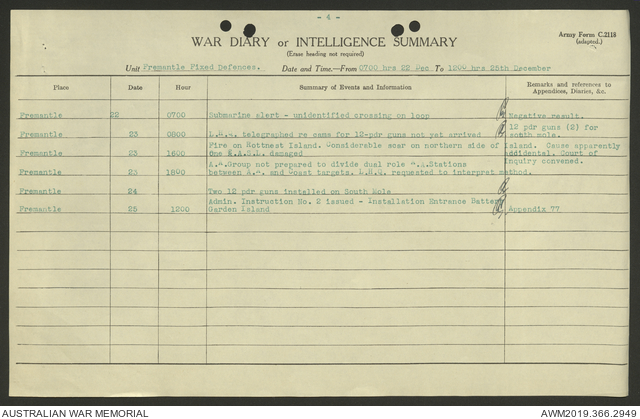 - 4 -
Army Form C.2118
(adapted.)
WAR DIARY or INTELLIGENCE SUMMARY
(Erase heading not required)
Unit Fremantle Fixed Defences. Date and Time.—From 0700 hrs 22 Dec To 1200 hrs 25th December
Place Date Hour Summary of Events and Information Remarks and references to
Appendices, Diaries, &c.
Fremantle 22 0700 Submarine alert - unidentified crossing on loop Negative result.
Fremantle 23 0800 L.H.Q. telegraphed re cams for 12-pdr guns not yet arrived 12 pdr guns (2) for
South mole.
Fire on Rottnest Island. Considerable scar on northern side of Island. Cause apparently
Fremantle 23 1600 One S.A.S.L. damaged accidental. Court of
Inquiry convened.
A.A.Group not prepared to divide dual role A.A.Stations
Fremantle 23 1800 between A.A. and Coast targets. L.H.Q. requested to interpret method.
Fremantle 24 Two 12 pdr guns installed on South Mole
Admin. Instruction No. 2 issued - Installation Entrance Battery
Fremantle 25 1200 Garden Island Appendix 77
AUSTRALIAN WAR MEMORIAL AWM2019.366.2949